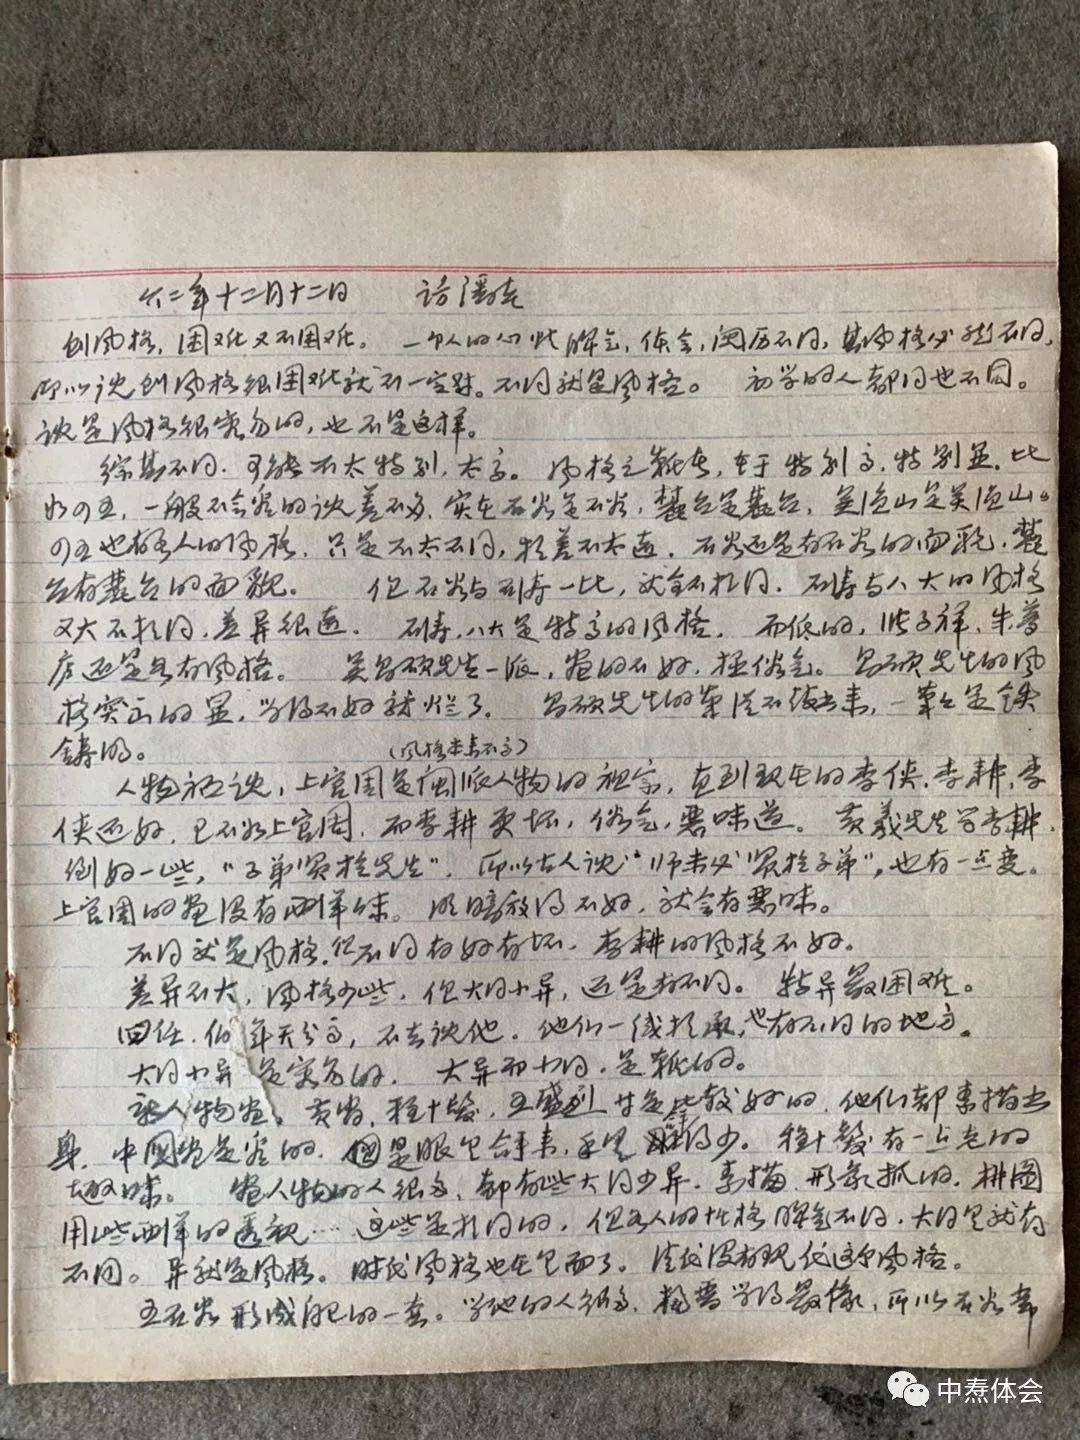 六二年十二月十二日 访潘老
创风格，困难又不困难。 一个人的心性脾气，体会，阅历不同，其风格必然不同，
所以说创风格很困难就不一定对。不同就是风格。 初学的人都同也不同。
说是风格很容易的，也不是这样。
综其不同，可能不太特别，太高。 风格之难在，在于特别高，特别显。比
如四王，一般不会画的说差不多，实在石谷是石谷，麓台是麓台，吴渔山是吴渔山。
四王也有各人的风格，只是不太不同，相差不太远。石谷还是有石谷的面貌，麓
台有麓台的面貌。 但石谷与石涛一比，就全不相同。石涛与八大的风格
又大不相同，差异很远。 石涛，八大是特高的风格。 而低的，张子祥，朱梦
庐还是各有风格。 吴昌硕先生一派，画的不好，极俗气。昌硕先生的风
格突出的显，学得不好就烂了。 昌硕先生的笔法不拔出来，一笔笔是铁
铸的。 （风格本来不高）
人物被说，上官周是闽派人物的祖宗，直到现在的李侠，李耕，李
侠还好，已不如上官周，而李耕更坏，俗气，恶味道。 黄羲先生学李耕，
倒好一些，“子弟贤于先生”，所以古人说“师未必贤于子弟”，也有一点变。
上官周的画没有西洋味。 明暗放得不好，就会有恶味。
不同就是风格，但不同有好有坏，李耕的风格不好。
差异不大，风格少些，但大同小异，还是有不同。 特异最困难。
四任，伯年天分高，不去说他。他们一线相承，也有不同的地方。
大同小异是容易的， 大异而小同，是难的。
新人物画，黄胄，程十发，王盛烈 廿是比较好的，他们都素描出
身，中国画是画的，但是眼里会年来，手里 练得少。 程十发有一点老的
趣味。 画人物的人很多，都有些大同少异，素描，形象抓的，构图
用些西洋的透视……这些是相同的，但各人的性格脾气不同，大同里就有
不同。 异就是风格。 时代风格也在里面了。 清代没有现代这个风格。
王石谷形成自己的一套。学他的人很多，杨晋学得最像，所以石谷帮
中焘体会